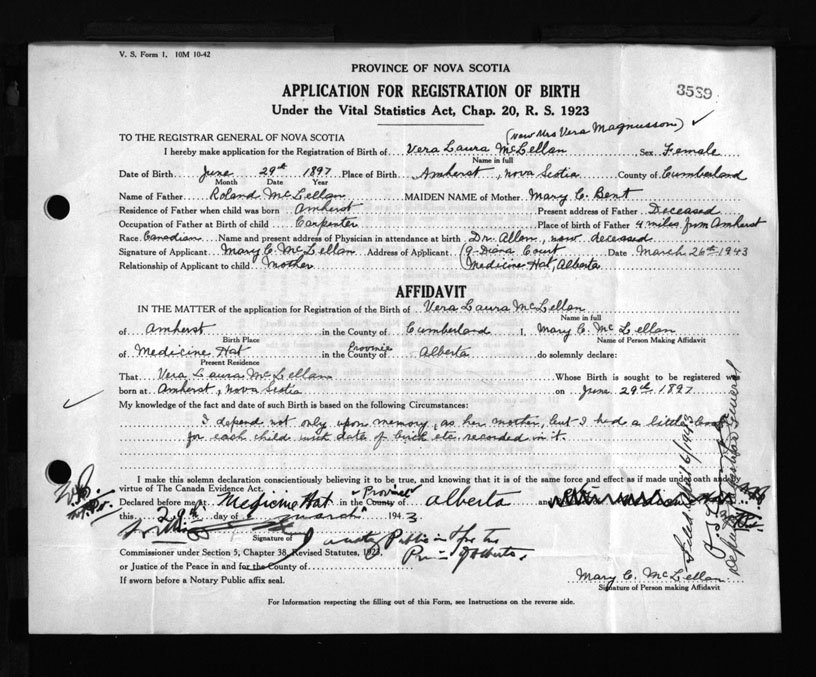 V. S. Form 1. 10M 10-42
PROVINCE OF NOVA SCOTIA
3539
APPLICATION FOR REGISTRATION OF BIRTH
Under the Vital Statistics Act, Chap. 20, R. S. 1923
(now Mrs Vera Magnusson)
TO THE REGISTRAR GENERAL OF NOVA SCOTIA
I hereby make application for the Registration of Birth of Vera Laura McLellan Sex Female
Name in full
Date of Birth June 29th 1897 Place of Birth Amherst, Nova Scotia County of Cumberland
Month Date Year
Name of Father Roland McLellan MAIDEN NAME of Mother Mary C. Bent
Residence of Father when child was born Amherst Present address of Father Deceased
Occupation of Father at Birth of child Carpenter Place of birth of Father 4 miles from Amherst
Race Canadian Name and present address of Physician in attendance at birth Dr. Allan, now deceased
Signature of Applicant Mary C. McLellan Address of Applicant (9 Diana Court Date March 26th 1943
Relationship of Applicant to child Mother (Medicine Hat, Alberta
AFFIDAVIT
IN THE MATTER of the application for Registration of the Birth of Vera Laura McLellan
Name in full
of Amherst in the County of Cumberland I, Mary C. McLellan
Birth Place Name of Person Making Affidavit
of Medicine Hat in the County of Province Alberta do solemnly declare:
Present Residence
That Vera Laura McLellan Whose Birth is sought to be registered was
born at Amherst, Nova Scotia on June 29th 1897
My knowledge of the fact and date of such Birth is based on the following Circumstances:
I depend not only upon memory, as her mother, but I had a little book
for each child with date of birth etc. recorded in it.
I make this solemn declaration conscientiously believing it to be true, and knowing that it is of the same force and effect as if made under oath and by
virtue of The Canada Evidence Act.
Declared before me at Medicine Hat in the County of "Province" Alberta and
this 29th day of March 1943
Signature of
Notary Public in & for the
Commissioner under Section 5, Chapter 38, Revised Statutes, 1923
Prov of Alberta.
or Justice of the Peace in and for the County of
If sworn before a Notary Public affix seal.
Mary C. McLellan
Signature of Person making Affidavit
For Information respecting the filling out of this Form, see Instructions on the reverse side.
Filed 6/1943
Deputy Registrar General